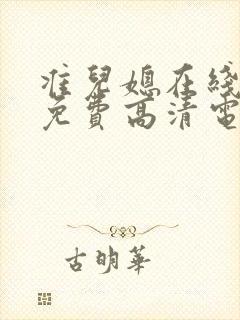 准兒媳在綫
免費高清電
古明華